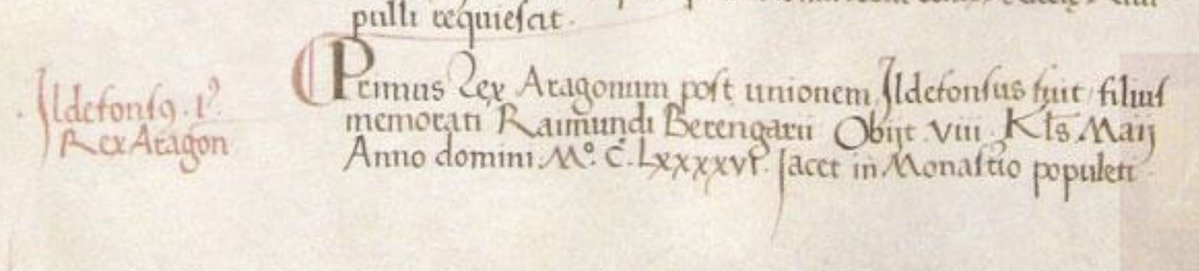 pulli requiescit.
Primus Rex Aragonum post unionem Ildefonsus fuit filius
memorati Raimundi Berengarii Obijt viii. Kls Maij
Anno domini M° C. Lxxxxvi. Jacet in Monastio populeti
Ildefonsꝰ. I°
Rex Aragon